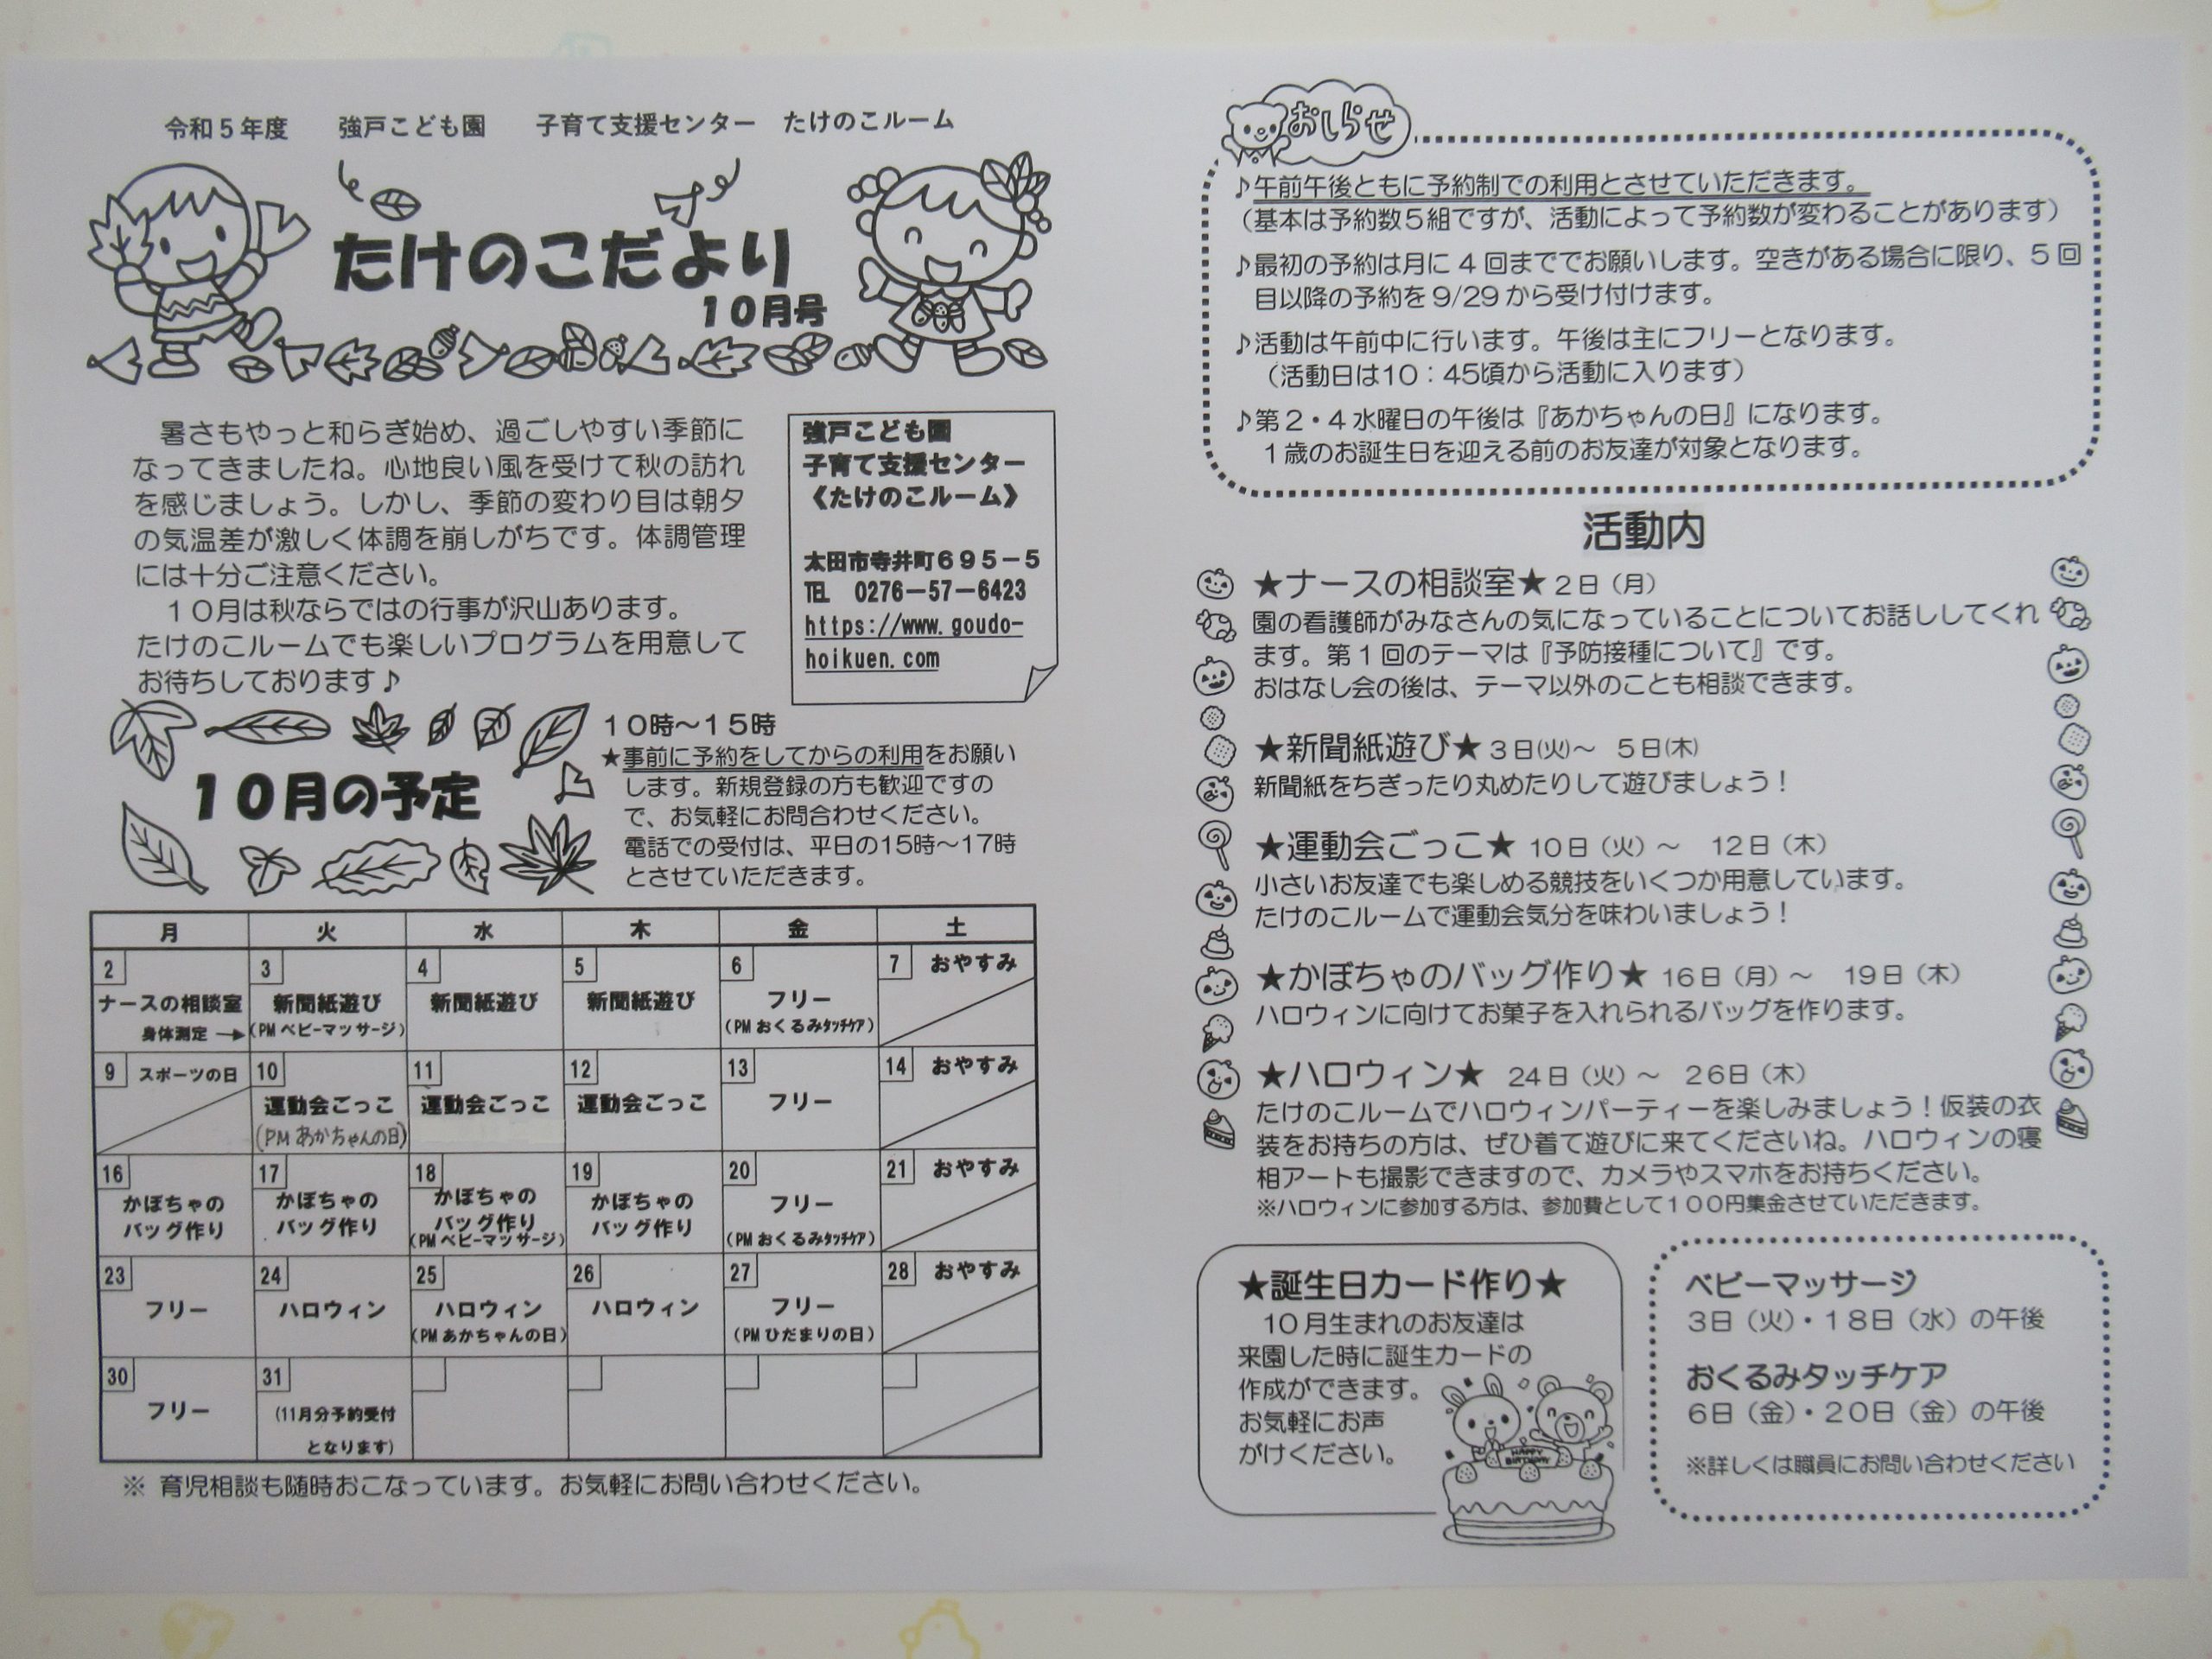 令和5年度　強戸こども園　子育て支援センター　たけのこルーム
たけのこだより
10月号
暑さもやっと和らぎ始め、過ごしやすい季節に
なってきましたね。心地良い風を受けて秋の訪れ
を感じましょう。しかし、季節の変わり目は朝夕
の気温差が激しく体調を崩しがちです。体調管理
には十分ご注意ください。
10月は秋ならではの行事が沢山あります。
たけのこルームでも楽しいプログラムを用意して
お待ちしております♪
強戸こども園
子育て支援センター
《たけのこルーム》
太田市寺井町695－5
℡　0276－57－6423
https://www.goudo-
hoikuen.com
10月の予定
10時～15時
★事前に予約をしてからの利用をお願い
します。新規登録の方も歓迎ですの
で、お気軽にお問合わせください。
電話での受付は、平日の15時～17時
とさせていただきます。
月　火　水　木　金　土
2　3　4　5　6　7　おやすみ
ナースの相談室　新聞紙遊び　新聞紙遊び　新聞紙遊び　フリー
身体測定→　(PM ベビーマッサージ)　(PM おくるみタッチケア)
9　スポーツの日　10　11　12　13　14　おやすみ
運動会ごっこ　運動会ごっこ　運動会ごっこ　フリー
(PM あかちゃんの日)
16　17　18　19　20　21　おやすみ
かぼちゃの　かぼちゃの　かぼちゃの　かぼちゃの　フリー
バッグ作り　バッグ作り　バッグ作り　バッグ作り
(PM ベビーマッサージ)　(PM おくるみタッチケア)
23　24　25　26　27　28　おやすみ
フリー　ハロウィン　ハロウィン　ハロウィン　フリー
(PM あかちゃんの日)　(PM ひだまりの日)
30　31
フリー　(11月分予約受付
となります)
※ 育児相談も随時おこなっています。お気軽にお問い合わせください。
おしらせ
♪午前午後ともに予約制での利用とさせていただきます。
（基本は予約数5組ですが、活動によって予約数が変わることがあります）
♪最初の予約は月に4回まででお願いします。空きがある場合に限り、5回
目以降の予約を9/29から受け付けます。
♪活動は午前中に行います。午後は主にフリーとなります。
（活動日は10：45頃から活動に入ります）
♪第2・4水曜日の午後は『あかちゃんの日』になります。
1歳のお誕生日を迎える前のお友達が対象となります。
活動内
★ナースの相談室★ 2日（月）
園の看護師がみなさんの気になっていることについてお話ししてくれ
ます。第1回のテーマは『予防接種について』です。
おはなし会の後は、テーマ以外のことも相談できます。
★新聞紙遊び★ 3日(火)～　5日(木)
新聞紙をちぎったり丸めたりして遊びましょう！
★運動会ごっこ★ 10日（火）～　12日（木）
小さいお友達でも楽しめる競技をいくつか用意しています。
たけのこルームで運動会気分を味わいましょう！
★かぼちゃのバッグ作り★ 16日（月）～　19日（木）
ハロウィンに向けてお菓子を入れられるバッグを作ります。
★ハロウィン★　24日（火）～　26日（木）
たけのこルームでハロウィンパーティーを楽しみましょう！仮装の衣
装をお持ちの方は、ぜひ着て遊びに来てくださいね。ハロウィンの寝
相アートも撮影できますので、カメラやスマホをお持ちください。
※ハロウィンに参加する方は、参加費として100円集金させていただきます。
★誕生日カード作り★
10月生まれのお友達は
来園した時に誕生カードの
作成ができます。
お気軽にお声
がけください。
HAPPY
BIRTHDAY
ベビーマッサージ
3日（火）・18日（水）の午後
おくるみタッチケア
6日（金）・20日（金）の午後
※詳しくは職員にお問い合わせください